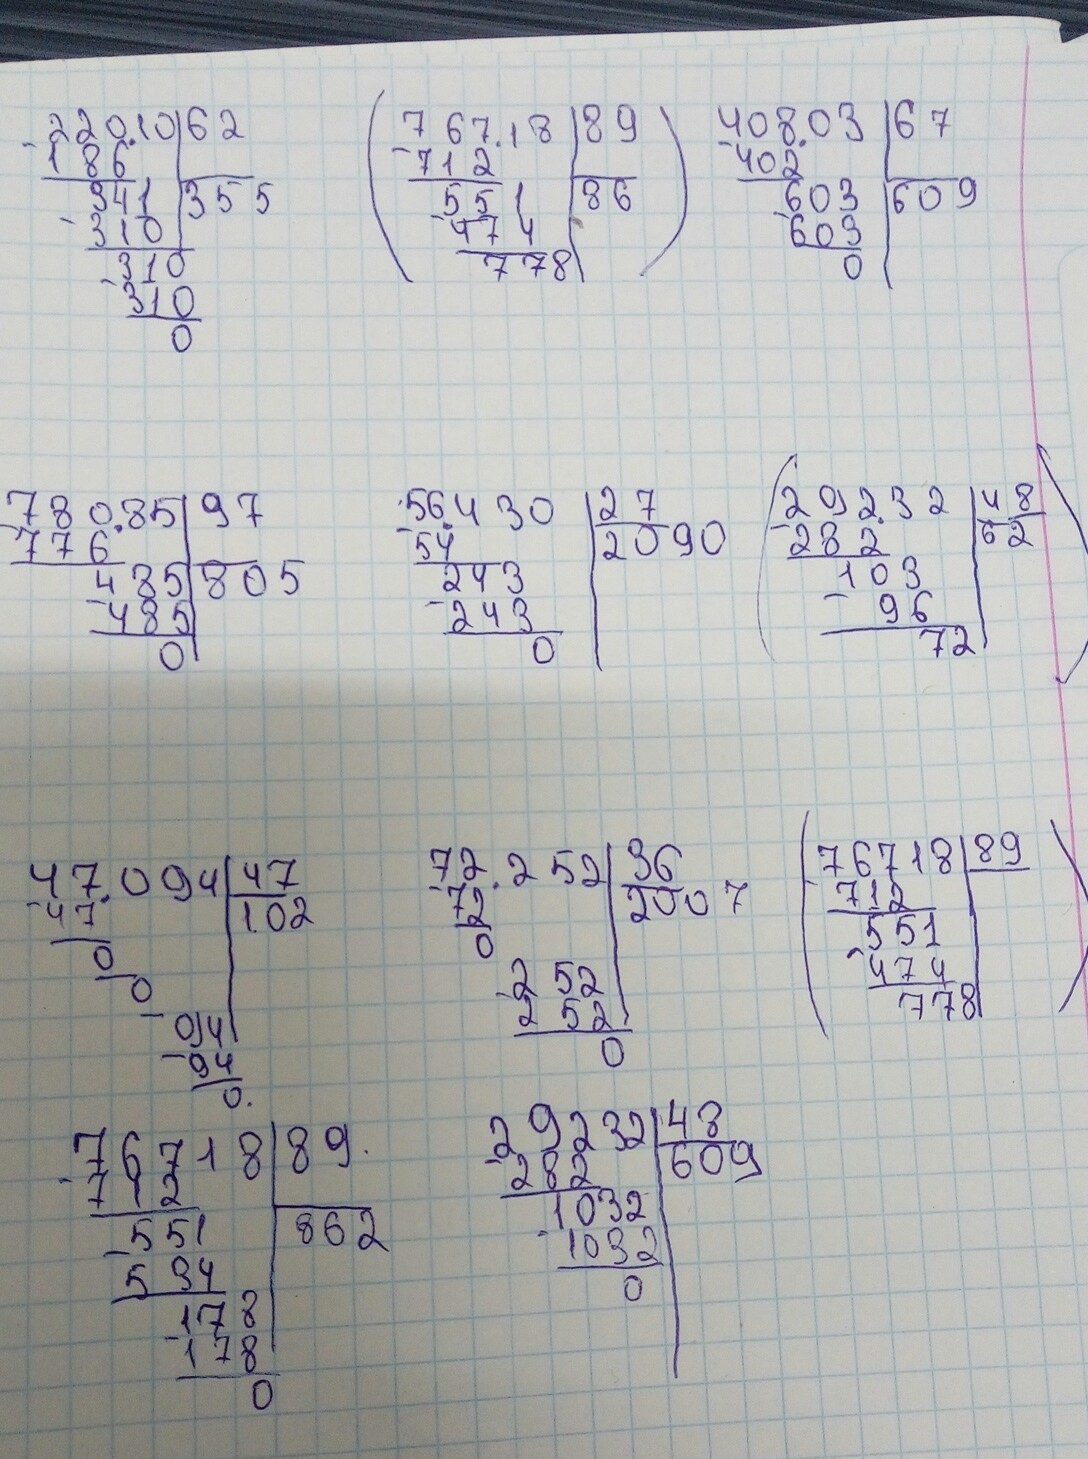 22010 62
186
341 355
310
310
310
0
767.18 89
712
551 86
474
778
408.03 67
402
603 609
603
0
780.85 97
776
485 805
485
0
56.430 27
54 2090
243
243
0
292.32 48
282 62
103
96
72
47.094 47
47 102
0
0
094
94
0.
72.252 36
72 2007
0
252
252
0
76718 89
712
551
474
778
76718 89.
712
551 862
534
178
178
0
29232 48
282 609
1032
1032
0